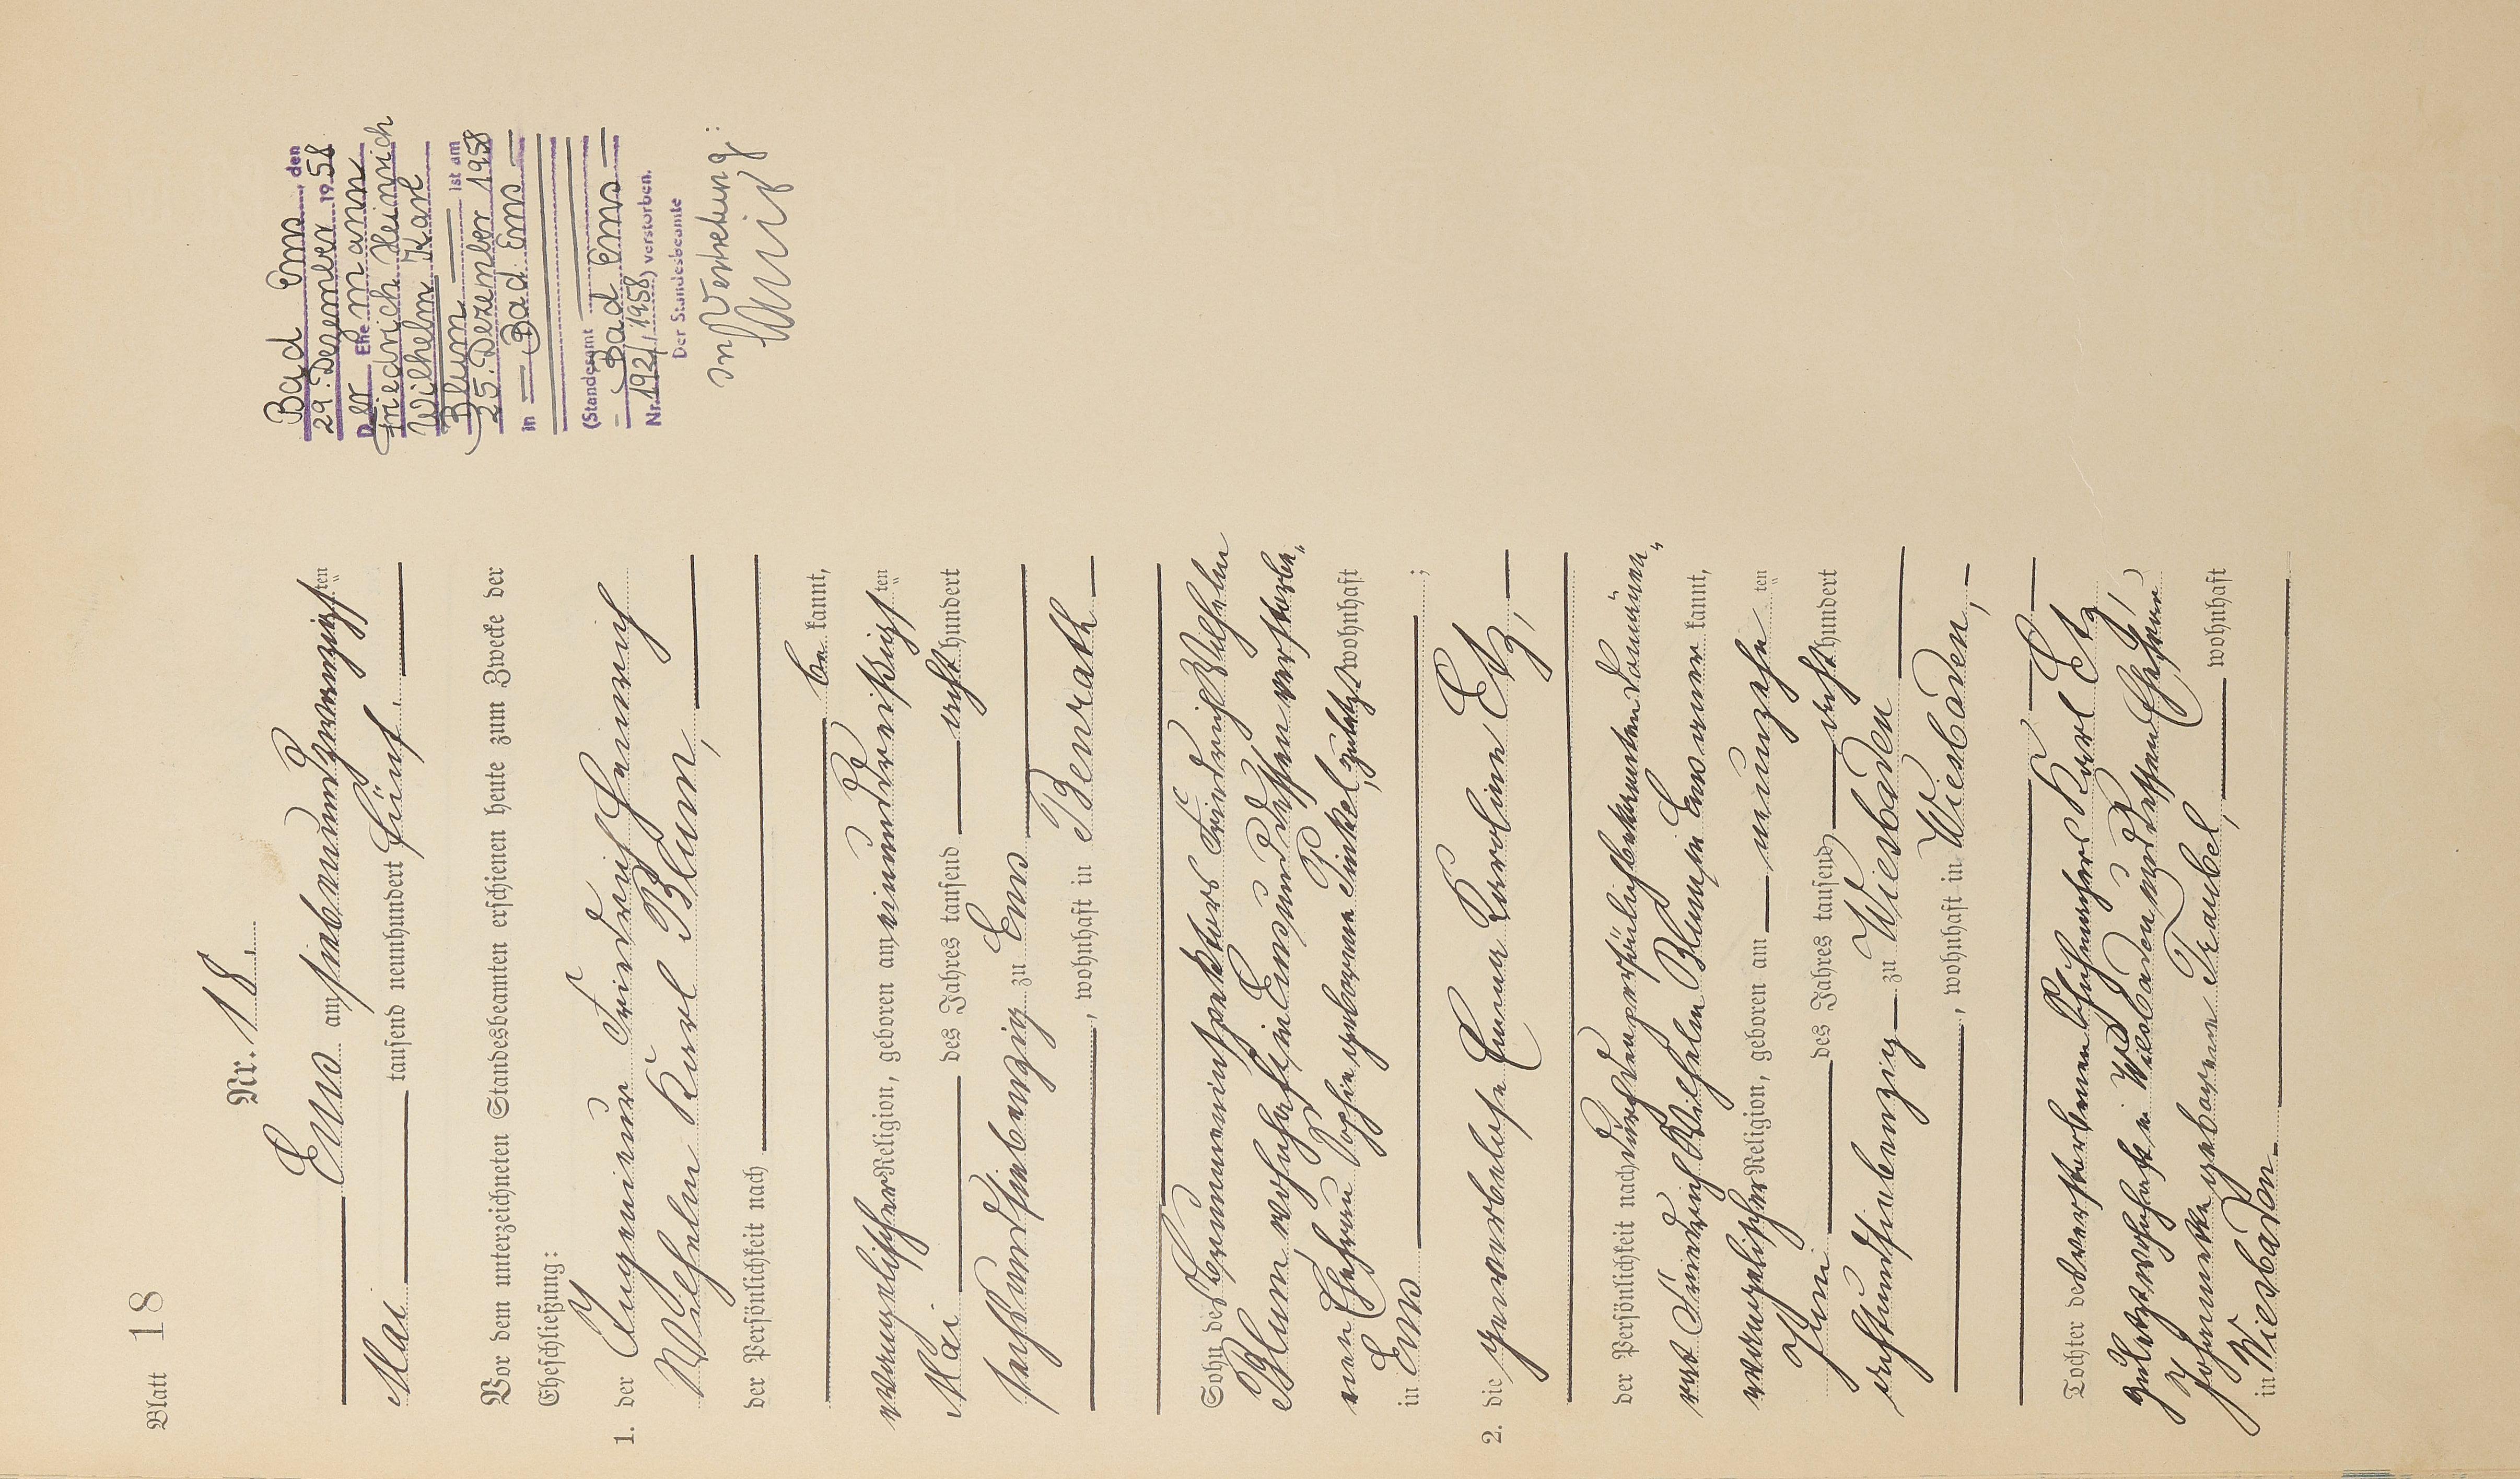 Blatt 18
Nr. 18.
Ems am siebenundzwanzigsten
Mai tausend neunhundert fünf.
Vor dem unterzeichneten Standesbeamten erschienen heute zum Zwecke der
Eheschließung:
1. der Ingenieur Friedrich Heinrich
Wilhelm Karl Blum,
der Persönlichkeit nach
be kannt,
evangelischer Religion, geboren am einunddreißigsten
Mai des Jahres tausend acht hundert
sechsundsiebenzig zu Ems
, wohnhaft in Benrath
Sohn des Brunneninspektors Friedrich Wilhelm
Blum, wohnhaft in Ems und dessen verstorbe„
nen Ehefrau Sophie geborene Finkel, zuletzt wohnhaft
in Ems ;
2. die gewerbelose Emma Karoline Etz,
der Persönlichkeit nach durch den persönlich bekannten Domänen„
rat Friedrich Wilhelm Blum in Ems aner kannt,
evangelischer Religion, geboren am neunzehn ten
Juni des Jahres tausend acht hundert
achtundsiebenzig zu Wiesbaden
, wohnhaft in Wiesbaden,
Tochter des verstorbenen Schuhmachers Karl Etz,
zuletzt wohnhaft in Wiesbaden und dessen Ehefrau
Johannette geborene Traubel, wohnhaft
in Wiesbaden
Bad Ems, den
29. Dezember 1958
Der Ehemann
Friedrich Heinrich
Wilhelm Karl
Blum ist am
25. Dezember 1958
in Bad Ems
(Standesamt
Bad Ems
Nr. 192/1958) verstorben.
Der Standesbeamte
In Vertretung: